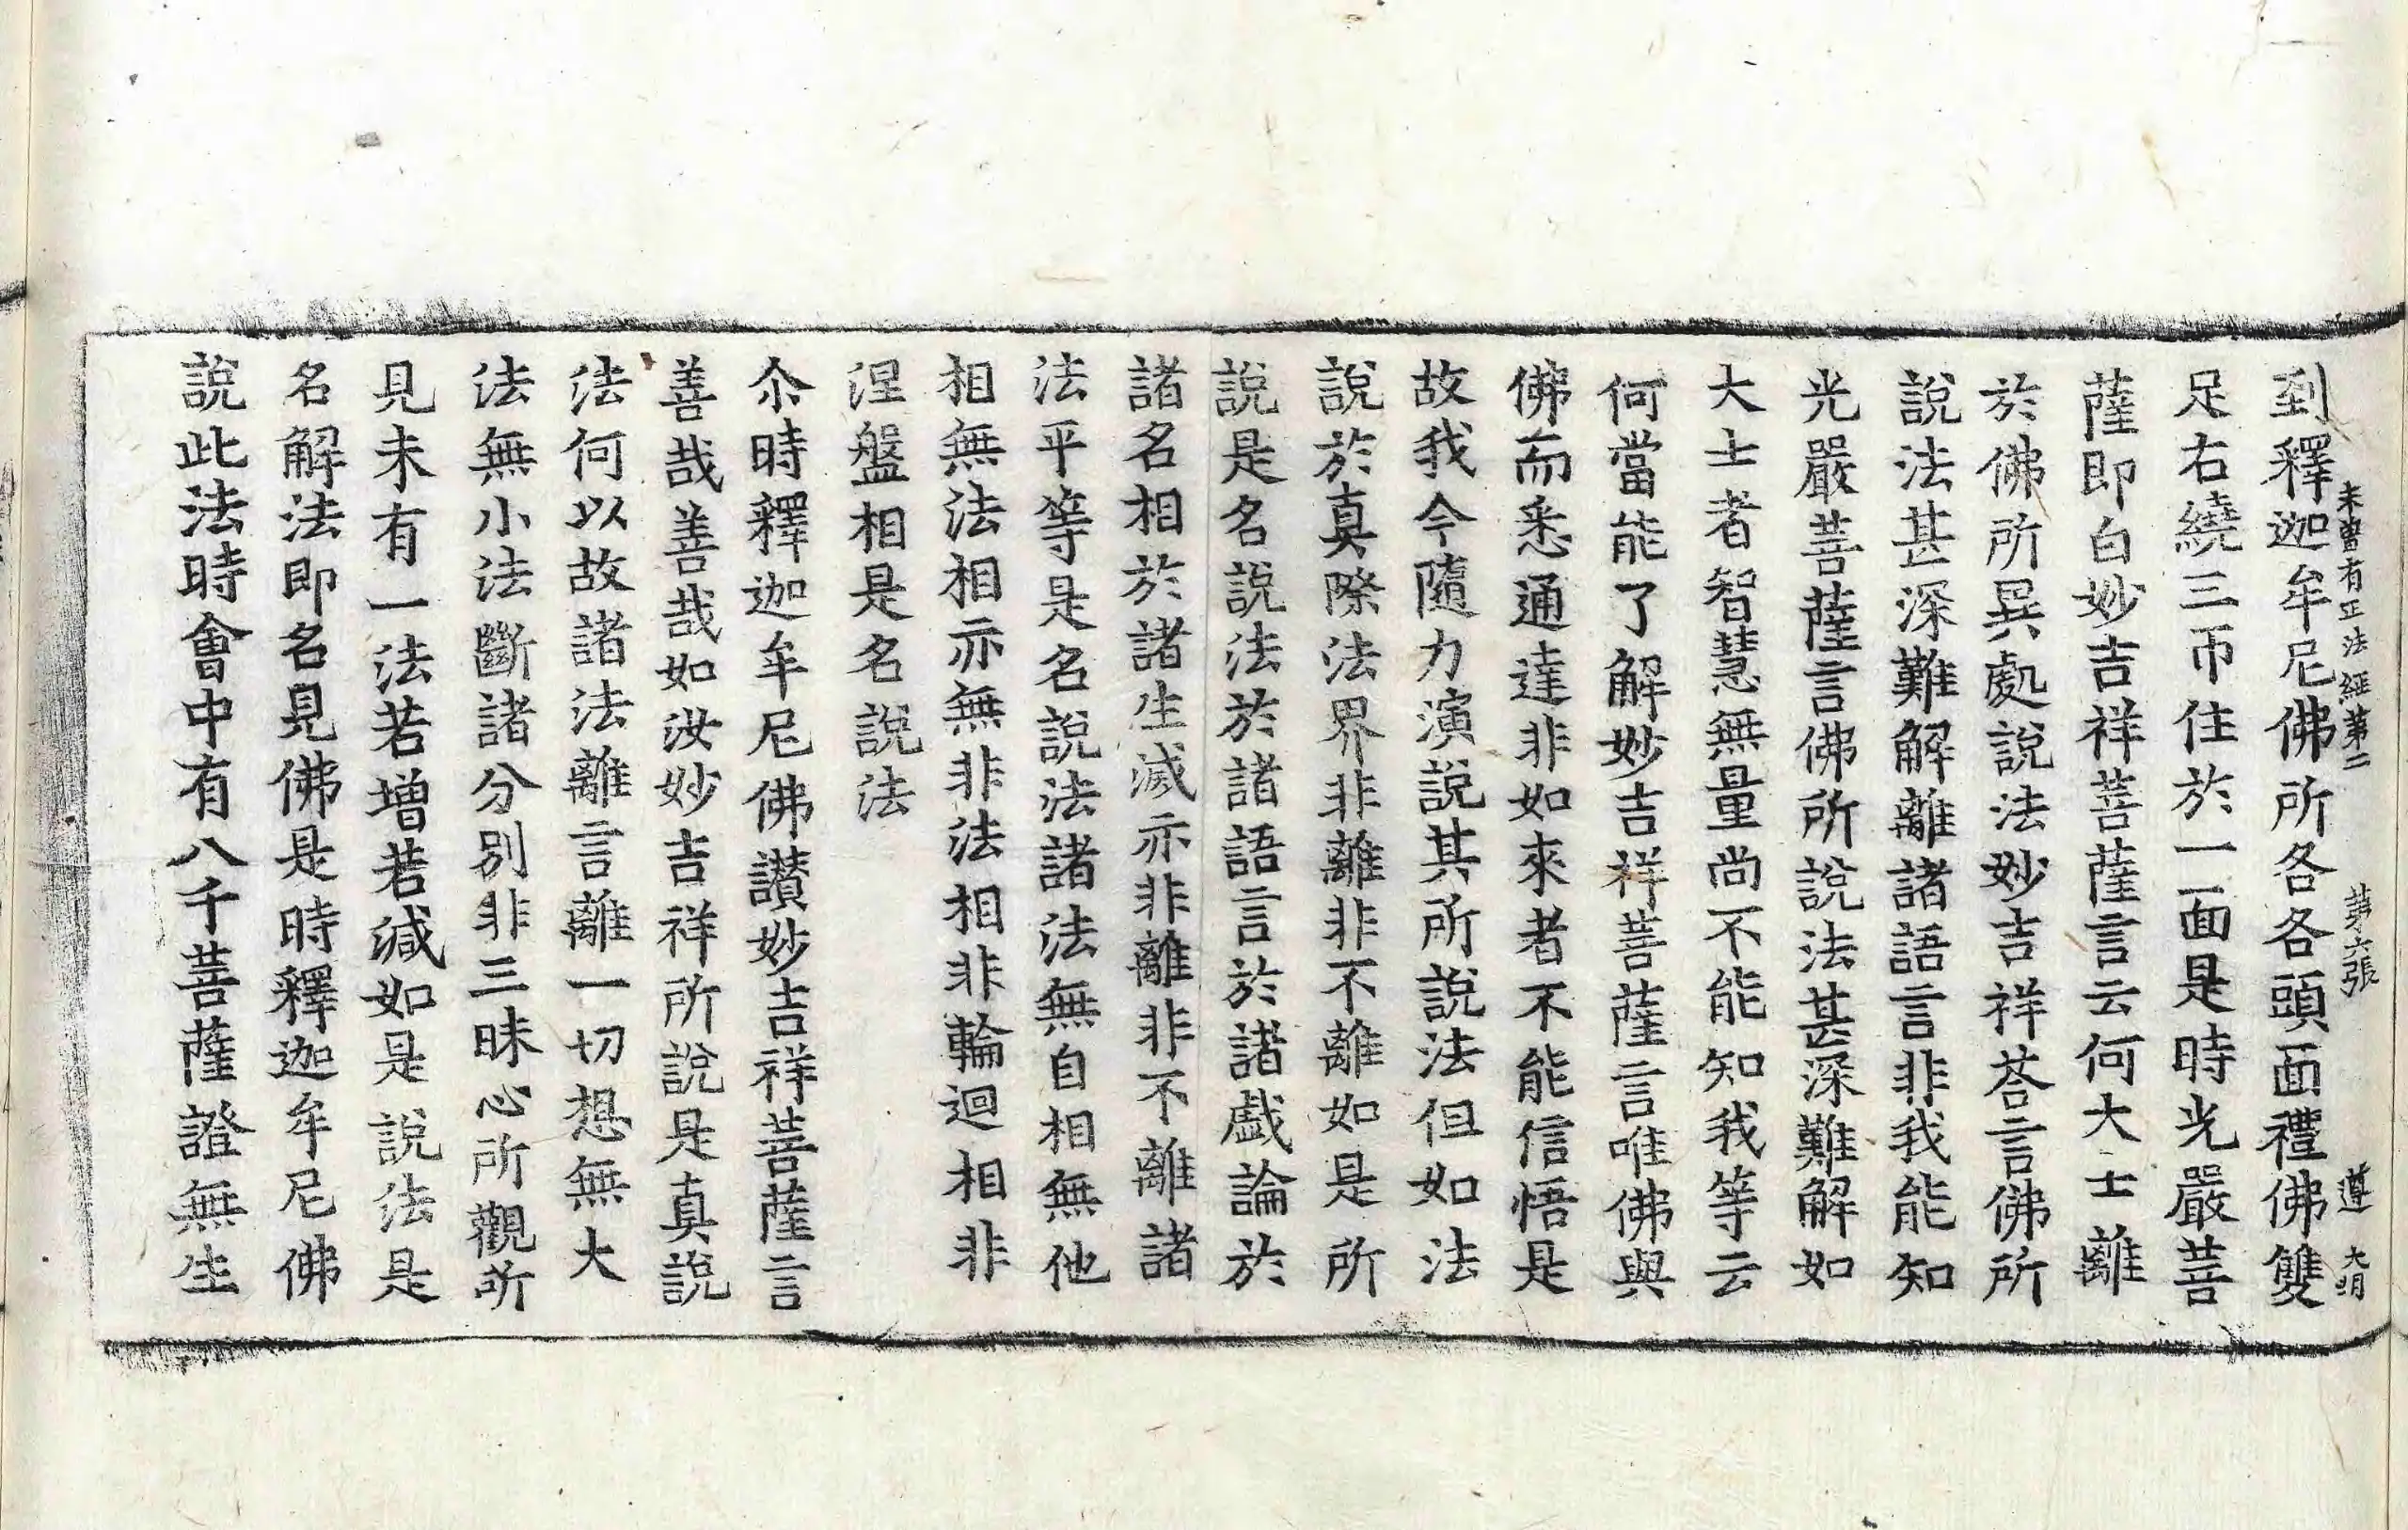 未曾有正法經第二 第六張 遵 大明
到釋迦牟尼佛所各各頭面禮佛雙
足右繞三帀住於一面是時光嚴菩
薩即白妙吉祥菩薩言云何大士離
於佛所異處說法妙吉祥荅言佛所
說法甚深難解離諸語言非我能知
光嚴菩薩言佛所說法甚深難解如
大士者智慧無量尚不能知我等云
何當能了解妙吉祥菩薩言唯佛與
佛而悉通達非如來者不能信悟是
故我今隨力演說其所說法但如法
說於真際法界非離非不離如是所
說是名說法於諸語言於諸戲論於
諸名相於諸生滅亦非離非不離諸
法平等是名說法諸法無自相無他
相無法相亦無非法相非輪迴相非
涅盤相是名說法
尒時釋迦牟尼佛讃妙吉祥菩薩言
善哉善哉如汝妙吉祥所說是真說
法何以故諸法離言離一切想無大
法無小法斷諸分別非三昧心所觀所
見未有一法若增若減如是說法是
名解法即名見佛是時釋迦牟尼佛
說此法時會中有八千菩薩證無生